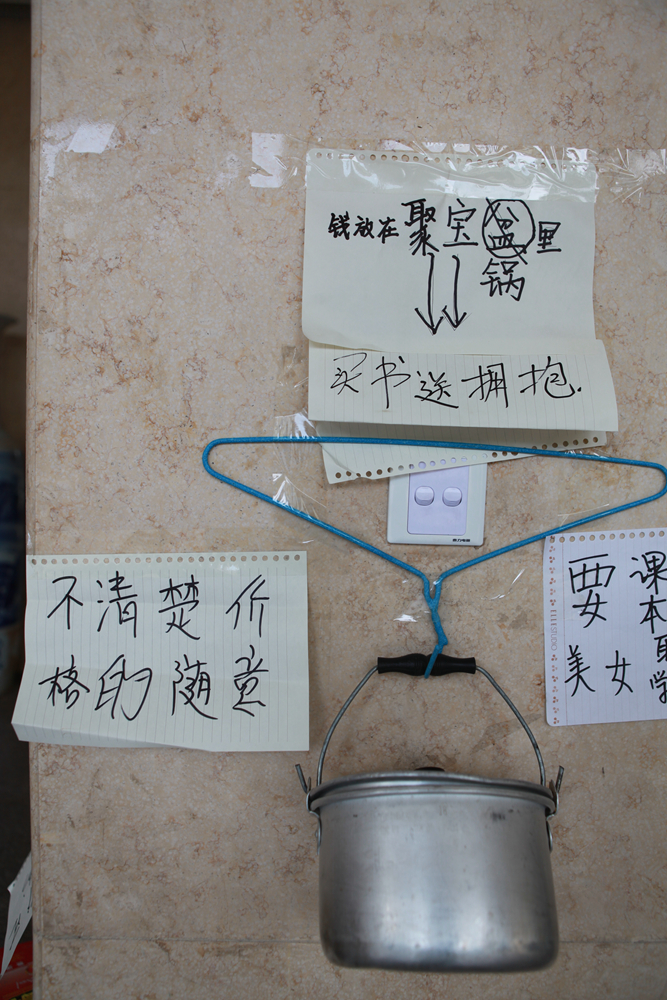 钱放在聚宝盆里
锅
买书送拥抱.
不清楚价
格的随意
要课
本
美女